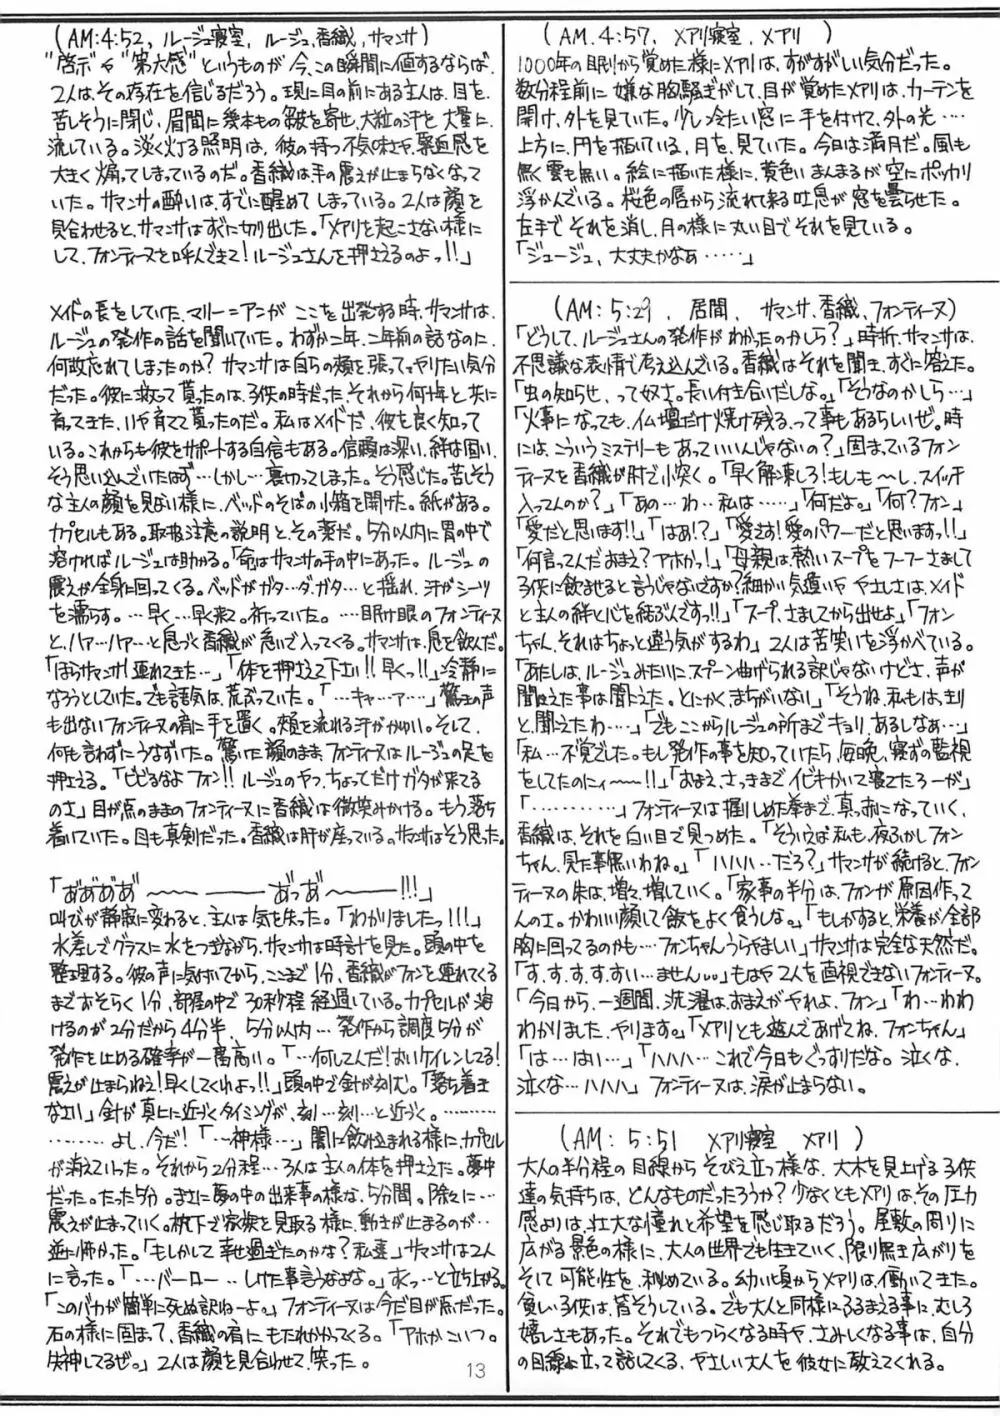 (AM:4:52, ルージュ寝室, ルージュ,香織,サマンサ)
"啓示"や"第六感"というものが今、この瞬間に値するならば、
2人は、その存在を信じるだろう。現に目の前にある主人は、目を、
苦しそうに閉じ、眉間に幾本もの皺を寄せ、大粒の汗を大量に、
流している。淡く灯る照明は、彼の持つ不気味さや、緊迫感を
大きく煽ってしまっているのだ。香織は手の震えが止まらなくなって
いた。サマンサの酔いは、すでに醒めてしまっている。2人は顔を
見合わせると、サマンサはすぐに切り出した。「メアリを起こさない様に
して、フォンティーヌを呼んできて!ルージュさんを押さえるのよっ!!」
メイドの長をしていた、マリー=アンが ここを出発する時、サマンサは、
ルージュの発作の話を聞いていた。わずか二年、二年前の話なのに、
何故忘れてしまったのか? サマンサは自らの頬を張ってやりたい気分
だった。彼に救って貰ったのは、子供の時だった、それから何十年と共に
育ってきた、いや育てて貰ったのだ。私はメイドだ、彼を良く知って
いる。これからも彼をサポートする自信もある。信頼は深い、絆は固い、
そう思い込んでいたはず…しかし…裏切ってしまった。そう感じた。苦しそう
な主人の顔を見ない様に、ベッドのそばの小箱を開けた。紙がある。
カプセルもある。取扱注意の説明と、その薬だ。5分以内に胃の中で
溶ければルージュは助かる。「命はサマンサの手の中にあった。ルージュの
震えが全身に回ってくる。ベッドがガタ…ダ、ガタ…と揺れ、汗がシーツ
を濡らす。…早く…早く来て。祈っていた。……眠け眼のフォンティーヌ
と、ハァ…ハァ…と息つく香織が急いで入ってくる。サマンサは、息を飲んだ。
「ほらサマンサ!連れてきた…」「体を押さえて下さい!!早くっ!!」冷静に
なろうとしていた。でも語気は、荒ぶっていた。「…キャ…ァ…」驚きの声
も出ないフォンティーヌの肩に手を置く。頬を流れる汗がかゆい。そして、
何も言わずにうなずいた。驚いた顔のまま、フォンティーヌはルージュの足を
押さえる。「ビビるなよフォン!!ルージュのやつ、ちょってだけガタが来てる
のさ」目が点のままのフォンティーヌに香織は微笑みかける。もう落ち
着いていた。目も真剣だった。香織は肝が座っている。サマンサはそう思った。
「あ゛あ゛あ゛あ゛〜〜―〜 ―― あ゛っあ゛〜――〜!!!」
叫びが静寂に変わると、主人は気を失った。「わかりましたっ!!!」
水差しでグラスに水をつぎながら、サマンサは時計を見た。頭の中を
整理する。彼の声に気付いてから、ここまで1分、香織がフォンを連れてくる
までおそらく1分、部屋の中で30秒程経過している。カプセルが溶
けるのが2分だから4分半、5分以内…発作から調度5分が
発作を止める確率が一番高い。「…何してんだ!おい!ケイレンしてる!
震えが止まらねぇ!早くしてくれよっ!!」頭の中で針が刻む。「落ち着き
なさい」針が真上に近づくタイミングが、刻…刻…と近づく。…………
…………よし、今だ!「…神様…」闇に飲み込まれる様に、カプセル
が消えていった。それから2分程…3人は主人の体を押さえた。夢中
だった。たった5分。まさに夢の中の出来事の様な、5分間。除々に…
震えが止まっていく。枕下で家族を見取る様に、動きが止まるのが‥
並に怖かった。「もしかして幸せ過ぎたのかな?私達」サマンサは2人
に言った。「…バーロー‥しけた事言うなよな。」すくっ…と立ち上がる。
「このバカが簡単に死ぬ訳ねーよ。」フォンティーヌは今だ目が点だった。
石の様に固まって、香織の肩にもたれかかってくる。「アホかこいつ。
失神してるぜ。」2人は顔を見合わせて、笑った。
13
(AM.4:57, メアリ寝室, メアリ )
1000年の眠りから覚めた様にメアリは、すがすがしい気分だった。
数分程前に嫌な胸騒ぎがして、目が覚めたメアリは、カーテンを
開け、外を見ていた。少し冷たい窓に手を付けて、外の光……
上方に、円を描いている、月を、見ていた。今日は満月だ。風も
無く雲も無い。絵に描いた様に、黄色いまんまるが空にポッカリ
浮かんでいる。桜色の唇から流れて来る吐息が窓を曇らせた。
左手でそれを消し、月の様に丸い目でそれを見ている。
「ジュージュ、大丈夫かなぁ‥‥‥」
(AM:5:29, 居間, サマンサ,香織,フォンティーヌ)
「どうして、ルージュさんの発作がわかったのかしら?」時折、サマンサは、
不思議な表情で考え込んでいる。香織はそれを聞き、すぐに答えた。
「虫の知らせ、って奴さ。長い付き合いだしな。」「そうなのかしら…」
「火事になっても、仏壇だけ焼け残る、って事もあるらしいぜ。時
には、こういうミステリーもあっていいんじゃないの?」固まっているフォン
ティーヌを香織が肘で小突く。「早く解凍しろ!もしも〜し、スイッチ
入ってんのか?」「あの…わ‥私は……」「何だよ。」「何?フォン」
「愛だと思います!!」「はあ!?」「愛です!愛のパワーだと思いますっ!!」
「何言ってんだおまえ?アホかっ!」「母親は、熱いスープをフーフーさまして
子供に飲ませると言うじゃないですか?細かい気遣いややさしさは、メイド
と主人の絆と心を結ぶんです!!」「スープ、さましてから出せよ。」「フォン
ちゃん、それはちょっと違う気がするわ」2人は苦笑いを浮かべている。
「あたしは、ルージュみたいに、スプーン曲げられる訳じゃないけどさ、声が
聞こえた事は聞こえた。とにかく、まちがいない」「そうね、私もはっきり
と、聞こえたわ…」「でもここからルージュの所までキョリ、あるしなぁ…」
「私…不覚でした。もし発作の事を知っていたら、毎晩、寝ずの監視
をしてたのにィ〜―!!」「おまえ、さっきまでイビキかいて寝てたろーが」
「…………」フォンティーヌは握りしめた拳まで、真っ赤になっていく、
香織は、それを白い目で見つめた。「そういえば私も、夜ふかしフォン
ちゃん、見た事無いわね。」「ハハハ‥だろ?」サマンサが続けると、フォン
ティーヌの朱は、増々、増していく。「家事の半分は、フォンが原因作って
んのさ。かわいい顔して飯をよく食うしな。」「もしかすると、栄養が全部
胸に回ってるのかも…フォンちゃんうらやましい」サマンサは完全な天然だ。
「す、す、す、す、すい…ません。。」もはや2人を直視できないフォンティーヌ。
「今日から、一週間、洗濯は、おまえがやれよ、フォン」「わ…わわわ
わかりました、やります。」「メアリとも遊んであげてね、フォンちゃん」
「は…はい…」「ハハハ…これで今日もぐっすりだな。泣くな、
泣くな…ハハハ」フォンティーヌは、涙が止まらない。
(AM:5:51 メアリ寝室 メアリ )
大人の半分程の目線から、そびえ立つ様な、大木を見上げる子供
達の気持ちは、どんなものだったろうか?少なくともメアリは、その圧力
感よりは、壮大な憧れと希望を感じ取るだろう。屋敷の周りに
広がる景色の様に、大人の世界でも生きていく、限り無き広がりを
そして可能性を、秘めている。幼い頃からメアリは、働いてきた。
貧しい子供は、皆そうしている。でも大人と同様にふるまえる事に、むしろ
嬉しさもあった。それでもつらくなる時や、さみしくなる事は、自分
の目線に立って話してくる、やさしい大人を彼女に教えてくれる。